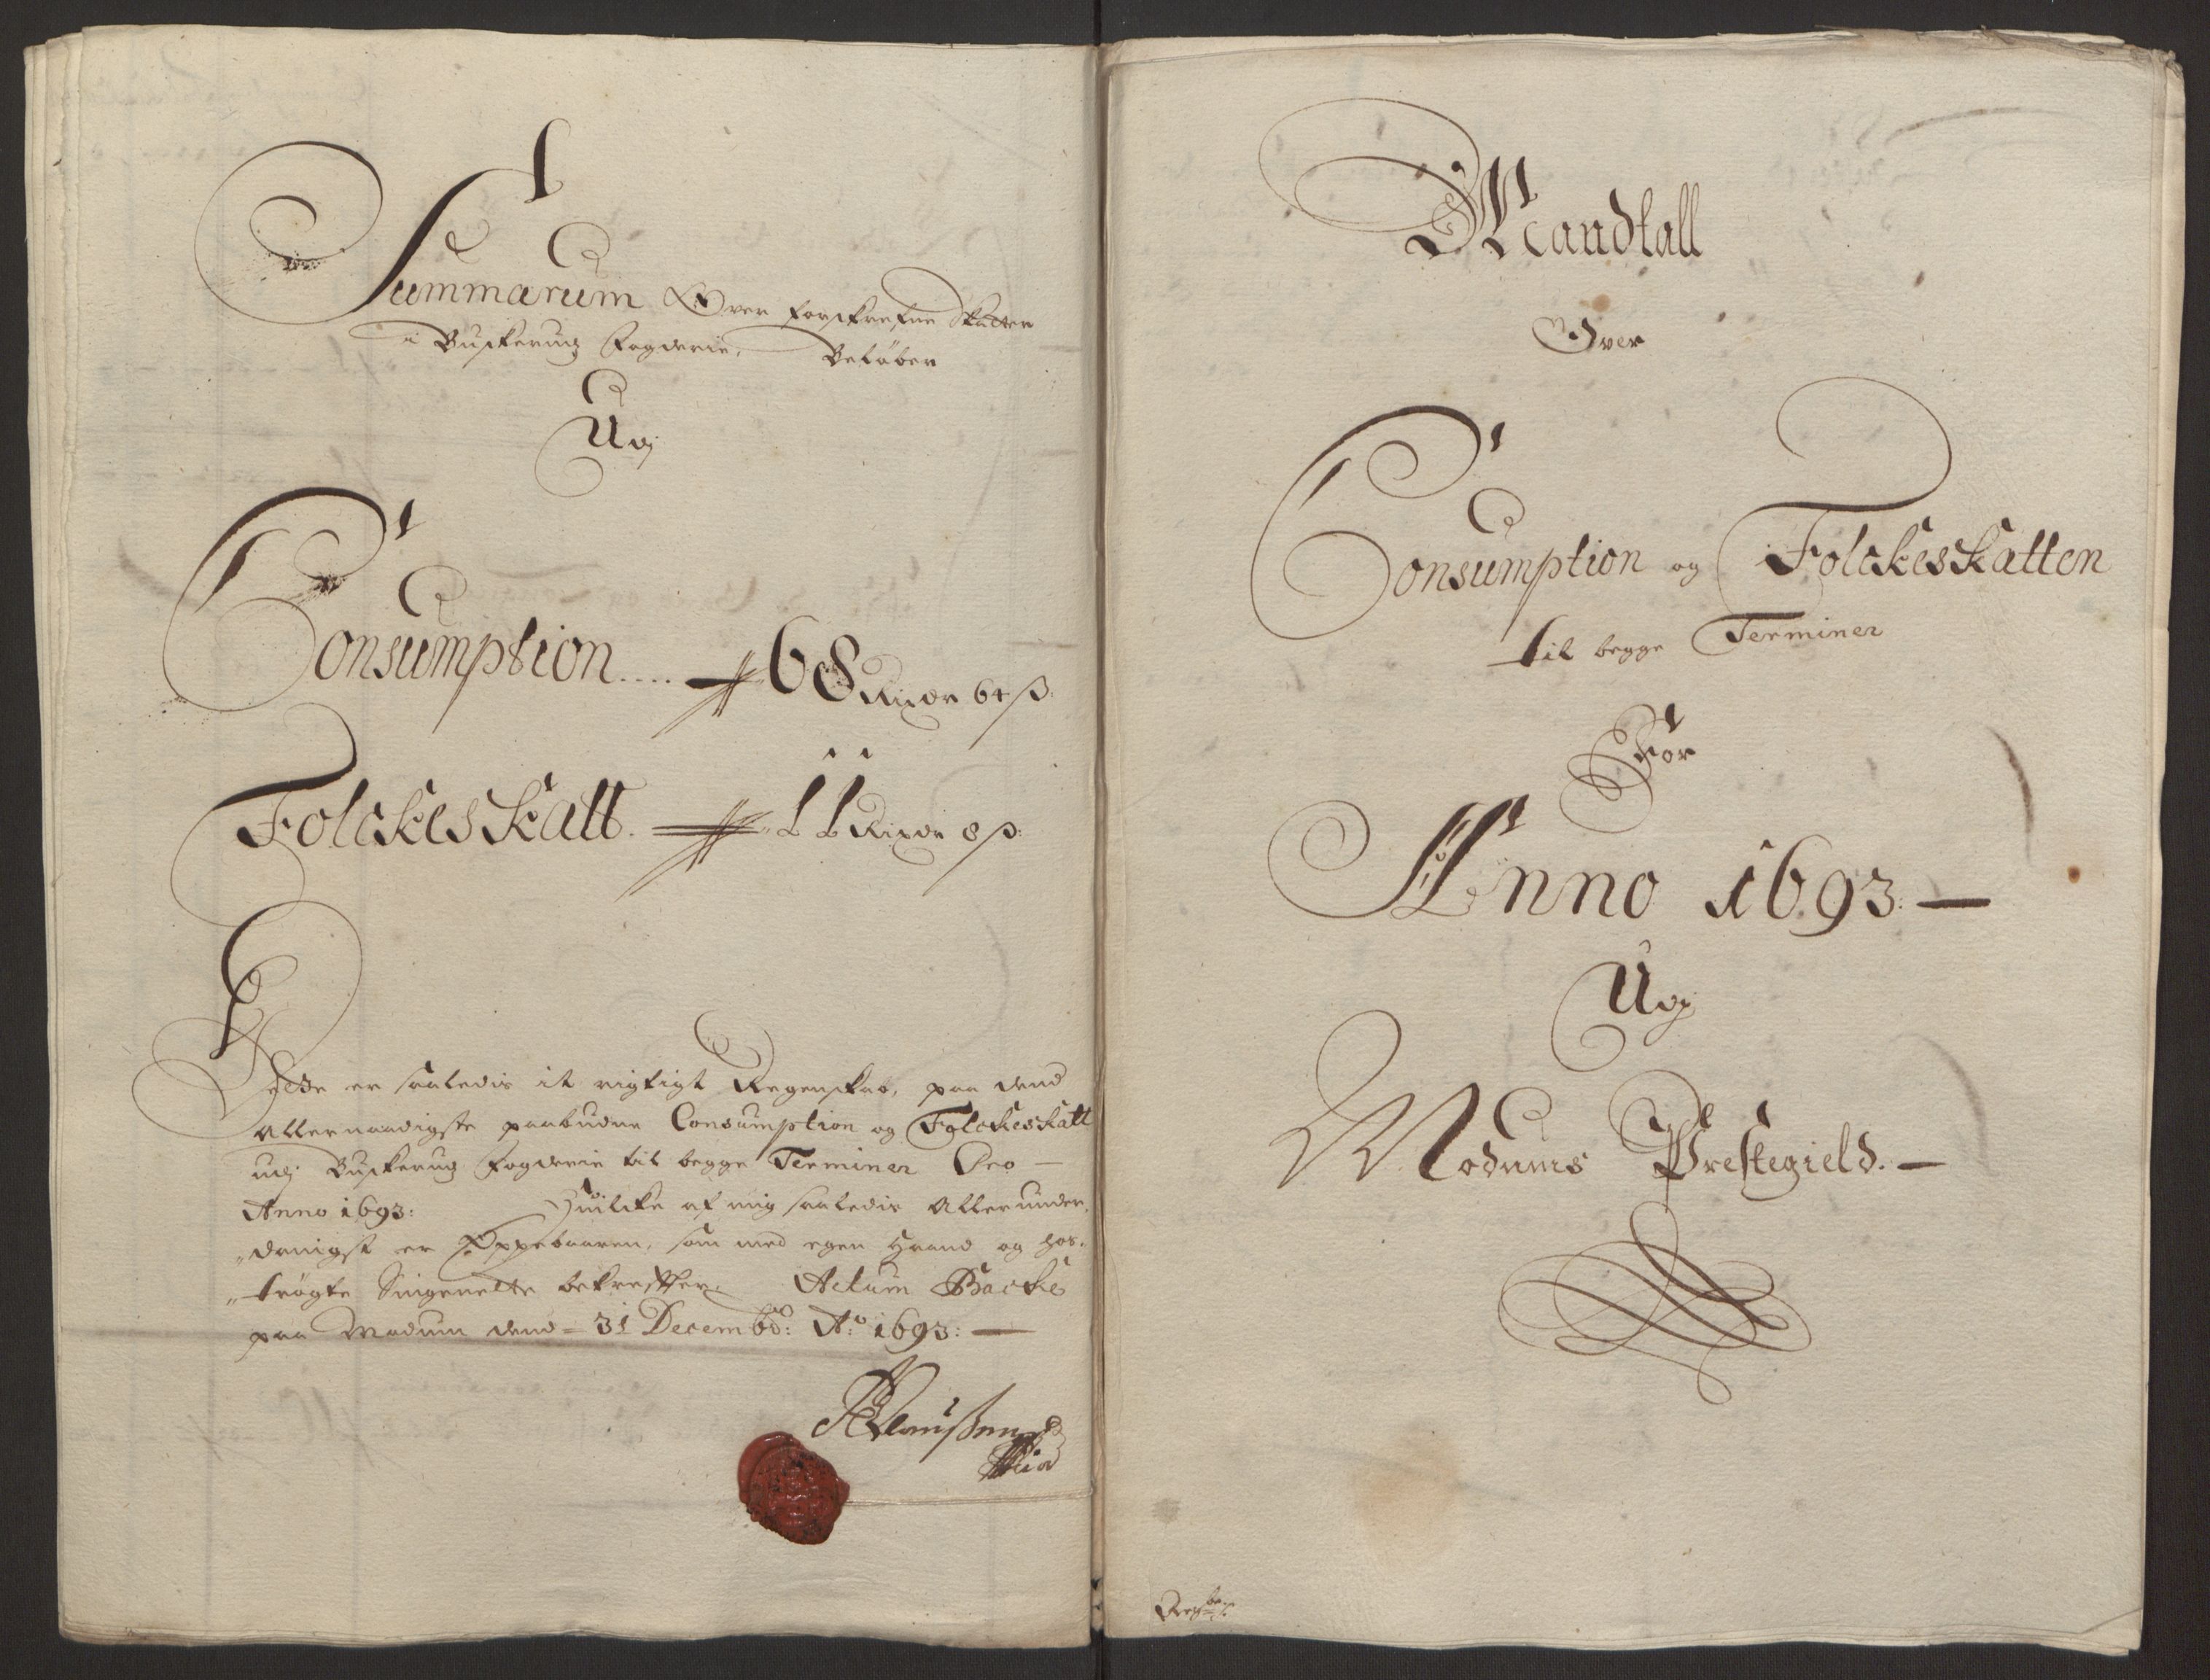 Summarum Over forskrefne Skatter
i Buskerud fogderie, Beløber
Udj
Consumption .... 68 Rixdr 64 ß:
Folckeskatt. 11 Rixdr 8 ß:
Dette er saaledis it rigtigt Regenskab, paa dend
Allernaadigste paabudne Consumption og Folckeskatt
udj Buskerud fogderie til begge Terminer Pro —
Anno 1693: Huilcke af mig saaledis Allerunder,
„danigst er Oppebaaren, som med egen Haand og hos,
„trögte Singenette bekreffter. Actum Backe
paa Modum dend = 31 Decembr: Ao: 1693: —
Mandtall
Over
Consumption og Folckeskatten
til begge Terminer
For
Anno 1693. —
Udj
Modums Prestegield. —